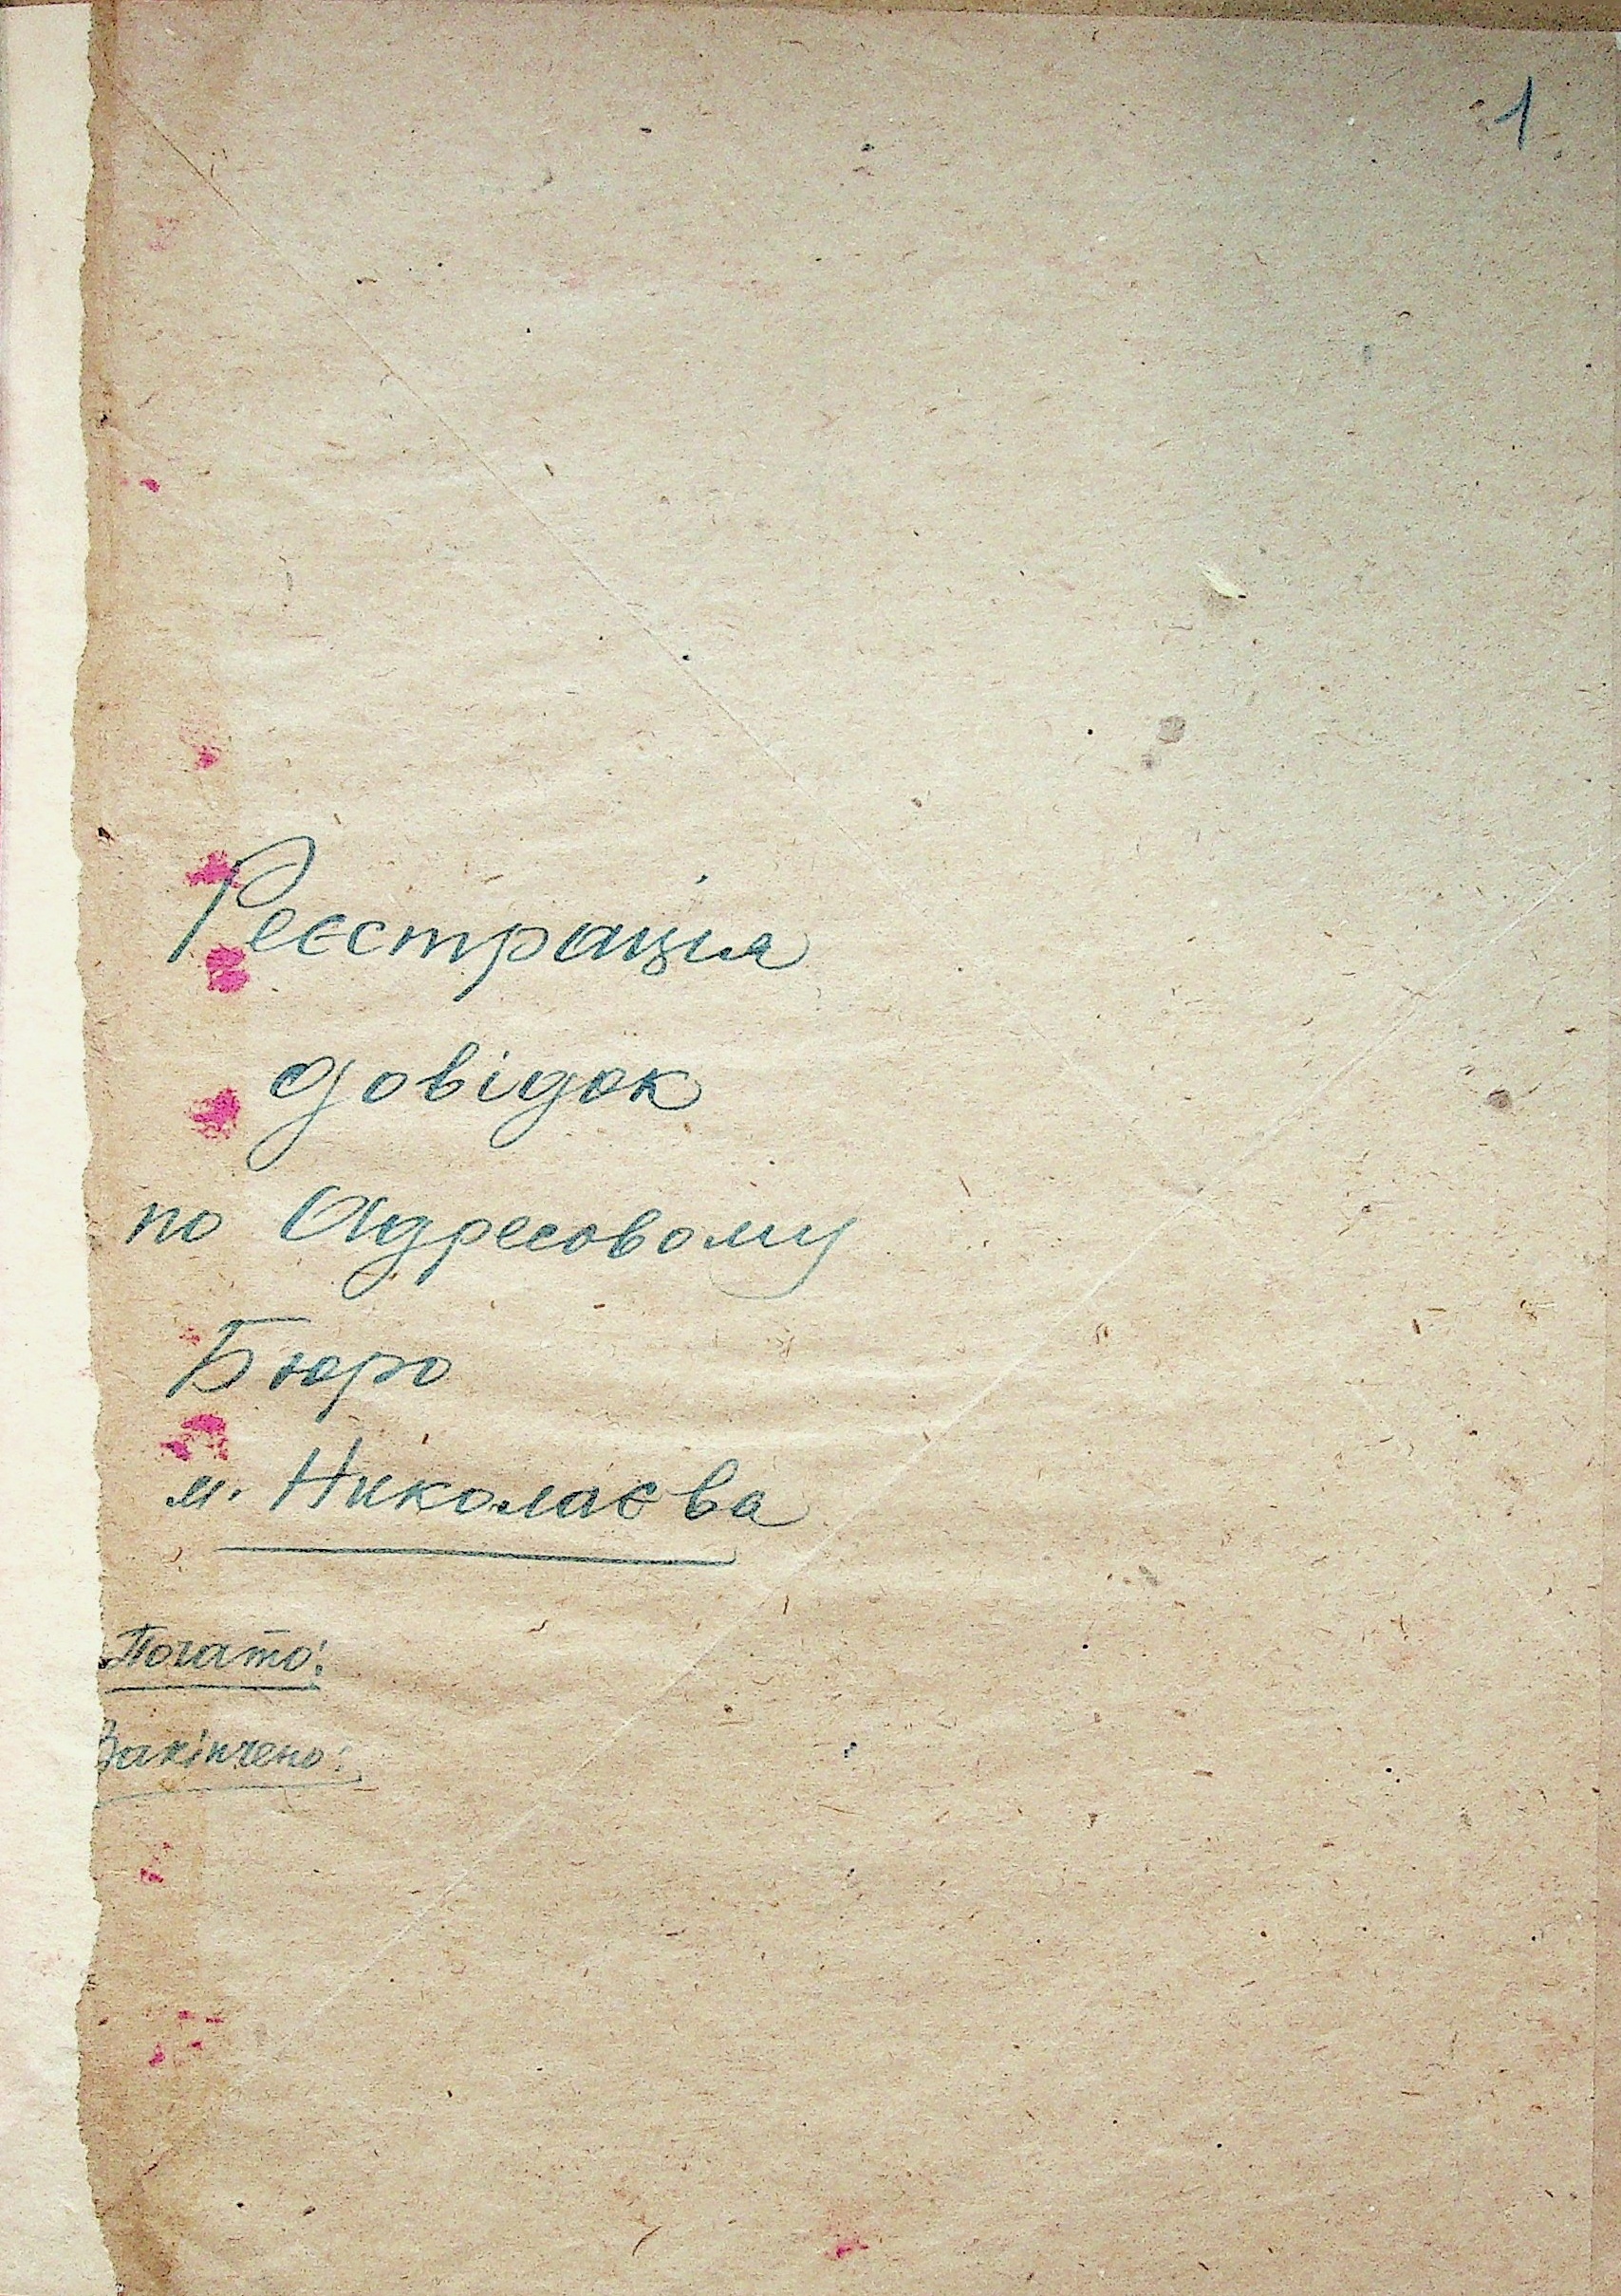 1
Реєстрація
довідок
по Адресовому
Бюро
м. Николаєва
Почато:
Закінчено: